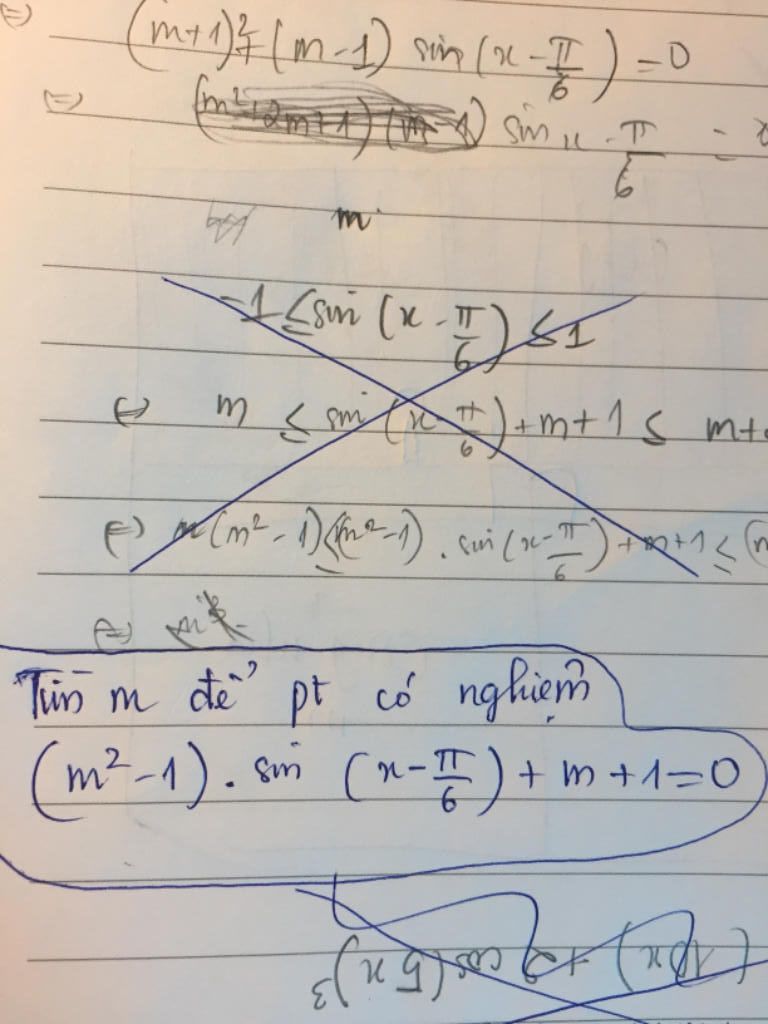 (=) (m+1)²+(m-1) sin(x-π/6)=0
(=) (m²+2m+1)(m-1) sin x-π/6 =
m
-1 ≤ sin (x-π/6) ≤ 1
(=) m ≤ sin (x-π/6)+m+1 ≤ m+
(=) m(m²-1)≤(m²-1).sin(x-π/6)+m+1≤
(=)
Tìm m để pt có nghiệm
(m²-1).sin (x-π/6)+m+1=0
+2 cos(5x)